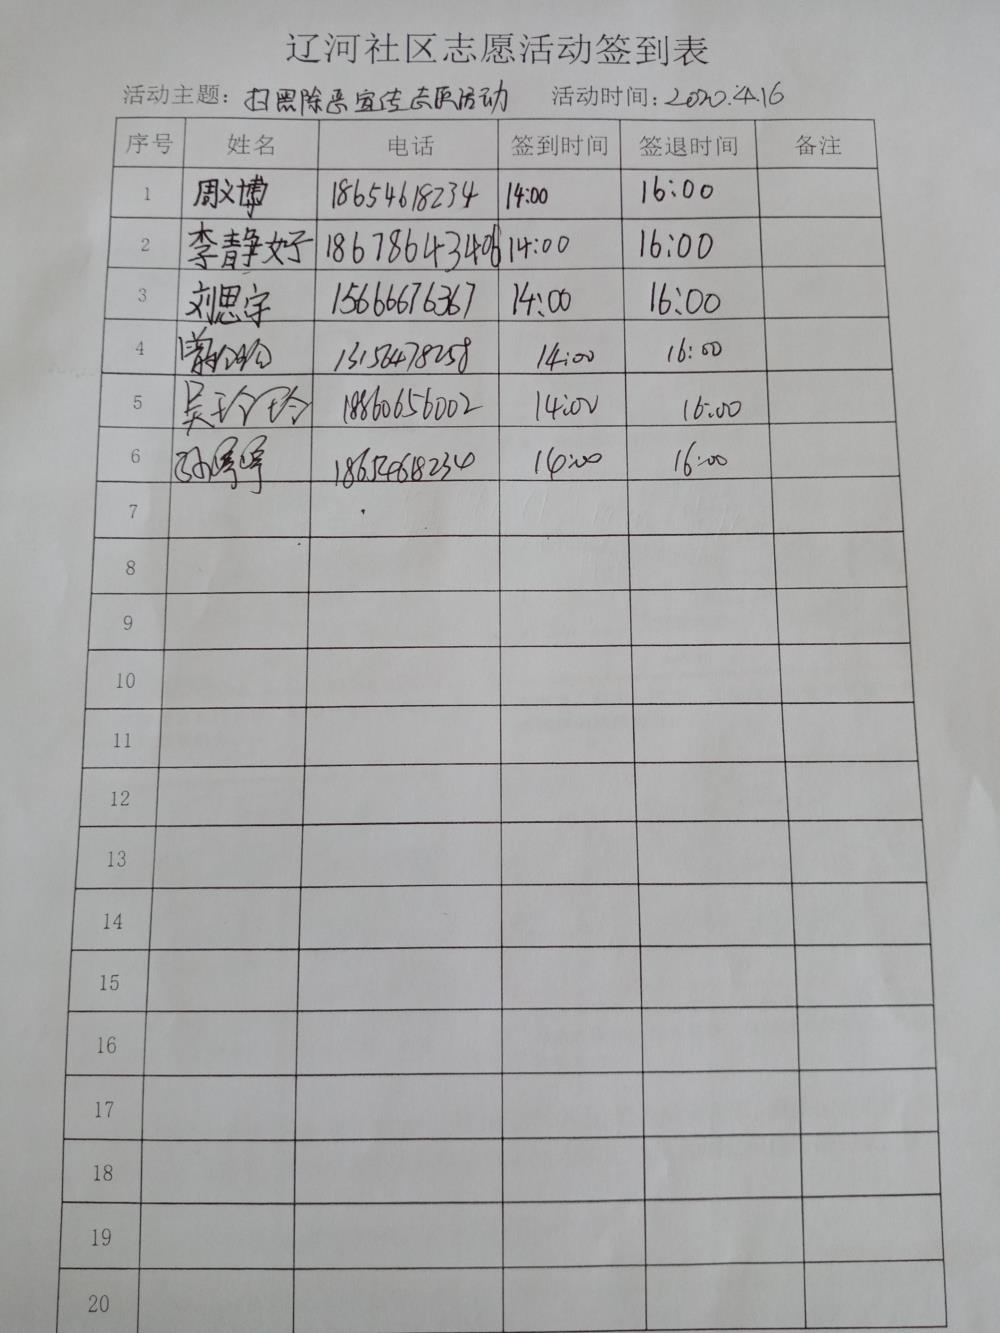 辽河社区志愿活动签到表
活动主题：扫黑除恶宣传志愿活动 活动时间：2020.4.16
序号 姓名 电话 签到时间 签退时间 备注
1 周文博 18654618234 14:00 16:00
2 李静好 18678643406 14:00 16:00
3 刘思宇 15666676367 14:00 16:00
4 13156478258 14:00 16:00
5 吴玲玲 18860656002 14:00 16:00
6 孙婷婷 18654618234 14:00 16:00
7
8
9
10
11
12
13
14
15
16
17
18
19
20